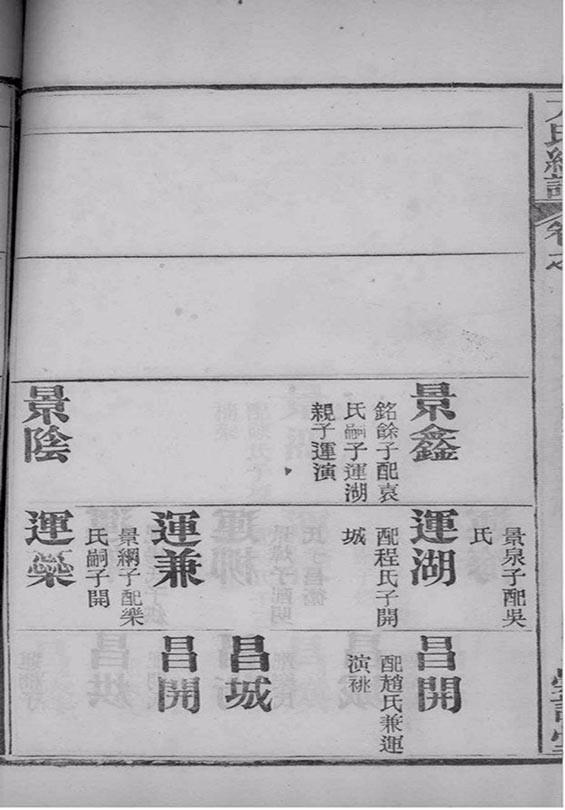 氏總譜
卷之
景鑫
銘餘子配袁
氏嗣子運湖
親子運演
景陰
景泉子配吳
氏
運湖
配程氏子開
城
運兼
景綱子配樂
氏嗣子開
運
昌開
配趙氏兼運
演祧
昌城
昌開